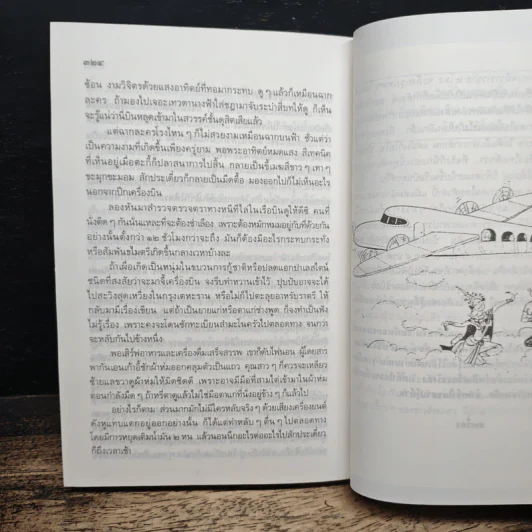 ๓๒๔
ซ้อน งามวิจิตรด้วยแสงอาทิตย์ที่ทอมากระทบ ดู ๆ แล้วก็เหมือนฉาก
ละคร ถ้ามองไปเจอะเทวดานางฟ้าใส่ชฎามาจับระบำสี่บทให้ดู ก็เห็น
จะรู้แน่ว่านี่บินหลุดเข้ามาในสวรรค์ชั้นดุสิตเสียแล้ว
แต่ฉากละครโรงไหน ๆ ก็ไม่สวยงามเหมือนฉากบนฟ้า ชั่วแต่ว่า
เป็นความงามที่เกิดขึ้นเพียงครู่ยาม พอพระอาทิตย์หมดแสง สีเทคนิค
ที่เห็นอยู่เมื่อตะกี้ก็ปลาสนาการไปสิ้น กลายเป็นขี้เมฆสีขาว ๆ เทา ๆ
ขะมุกขะมอม สักประเดี๋ยวก็กลายเป็นมืดตื้อ มองออกไปก็ไม่เห็นอะไร
นอกจากปีกเครื่องบิน
ลองหันมาสำรวจตรวจตราทางหนีทีไล่ในเรือบินดูให้ดีซิ คนที่
นั่งติด ๆ กันนั่นแหละที่จะต้องชำเลือง เพราะต้องหมักหมมอยู่กับที่ด้วยกัน
อย่างนั้นตั้งกว่า ๑๒ ชั่วโมงกว่าจะถึง มันก็ต้องมีอะไรกระทบกระทั่ง
หรือสัมพันธไมตรีเกิดขึ้นกลางเวหาบ้างละ
ถ้าเผื่อเกิดเป็นหนุ่มในขบวนการกู้ชาติหรือปลดแอกปาเลสไตน์
ชนิดที่สงสัยว่าจะมาจี้เครื่องบิน จงรีบทำหวานเข้าไว้ ปุบปับอาจจะได้
ไปสะวิงสุดเหวี่ยงในกรุงเตหะราน หรือไม่ก็ไปตะลุยอาหรับราตรี ให้
กลับมามีเรื่องเขียน แต่ถ้าเป็นยายแก่หรือตาแก่ช่างพูด ก็จงทำเป็นฟัง
ไม่รู้เรื่อง เพราะคงจะโดนซักทะเบียนสำมะโนครัวไปตลอดทาง จนกว่า
จะหลับกันไปข้างหนึ่ง
พอเสิร์ฟอาหารและเครื่องดื่มเสร็จสรรพ เขาก็ดับไฟนอน ผู้โดยสาร
พากันเอนเก้าอี้ชักผ้าห่มออกคลุมตัวเป็นแถว คุณสาว ๆ ก็ควรจะเหลียว
ซ้ายแลขวาดูผ้าห่มให้มิดชิดดี เพราะอาจมีมือที่สามไต่เข้ามาในผ้าห่ม
ตอนกำลังมืด ๆ ถ้าหรี่ตาดูแล้วไม่ใช่มือตาแก่ที่นั่งอยู่ข้าง ๆ ก็แล้วไป
อย่างไรก็ตาม ส่วนมากมักไม่มีใครหลับจริง ๆ ด้วยเสียงเครื่องยนต์
ดังหูแทบแตกอยู่ออกอย่างนั้น ก็ได้แต่ทำหลับ ๆ ตื่น ๆ ไปตลอดทาง
โดยมีการหยุดเติมน้ำมัน ๒ หน แล้วนอนนึกอะไรต่ออะไรไปสักประเดี๋ยว
ก็ถึงเวลาเช้า